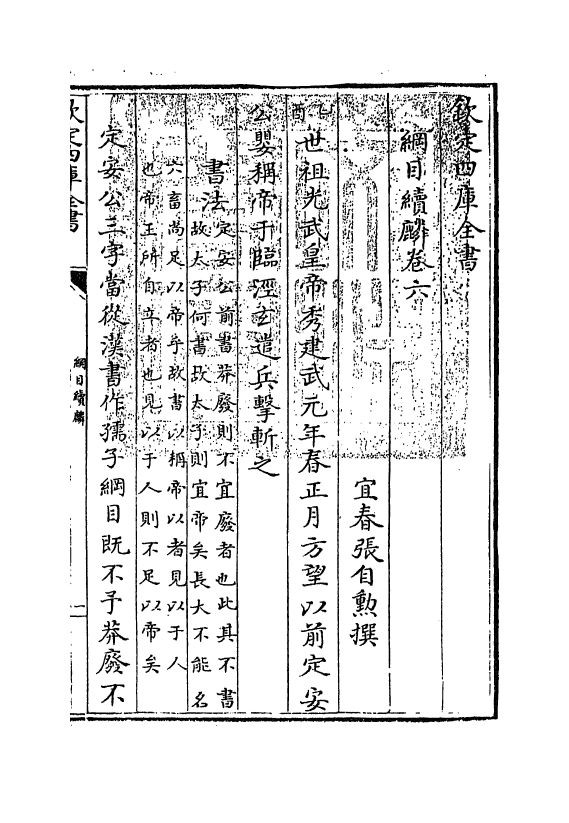 欽定四庫全書
綱目續麟卷六
宜春張自勲撰
乙酉
世祖光武皇帝秀建武元年春正月方望以前定安
公嬰稱帝于臨涇玄遣兵擊斬之
書法定安公前書莽廢則不宜廢者也此其不書
故太子何書故太子則宜帝矣長大不能名
六畜尚足以帝乎故書以稱帝以者見以于人
也帝王所自立者也見以于人則不足以帝矣
定安公三字當從漢書作孺子綱目既不予莽廢不
欽定四庫全書
綱目續麟